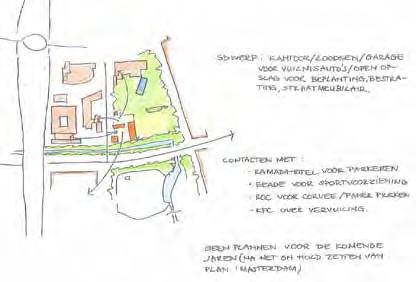 SDWERP: KANTOOR/LOODSEN/GARAGE
VOOR VUILNISAUTO'S/OPEN OP-
SLAG VOOR BEPLANTING, BESTRA-
TING, STRAATMEUBILAIR.
CONTACTEN MET:
- RAMADA HOTEL VOOR PARKEREN
- READE VOOR SPORTVOORZIENING
- ROC VOOR CORVEE/PAPIER PRIKKEN
- KFC OVER VERVUILING.
GEEN PLANNEN VOOR DE KOMENDE
JAREN (NA HET ON HOLD ZETTEN VAN
PLAN 'MASTERDAM)